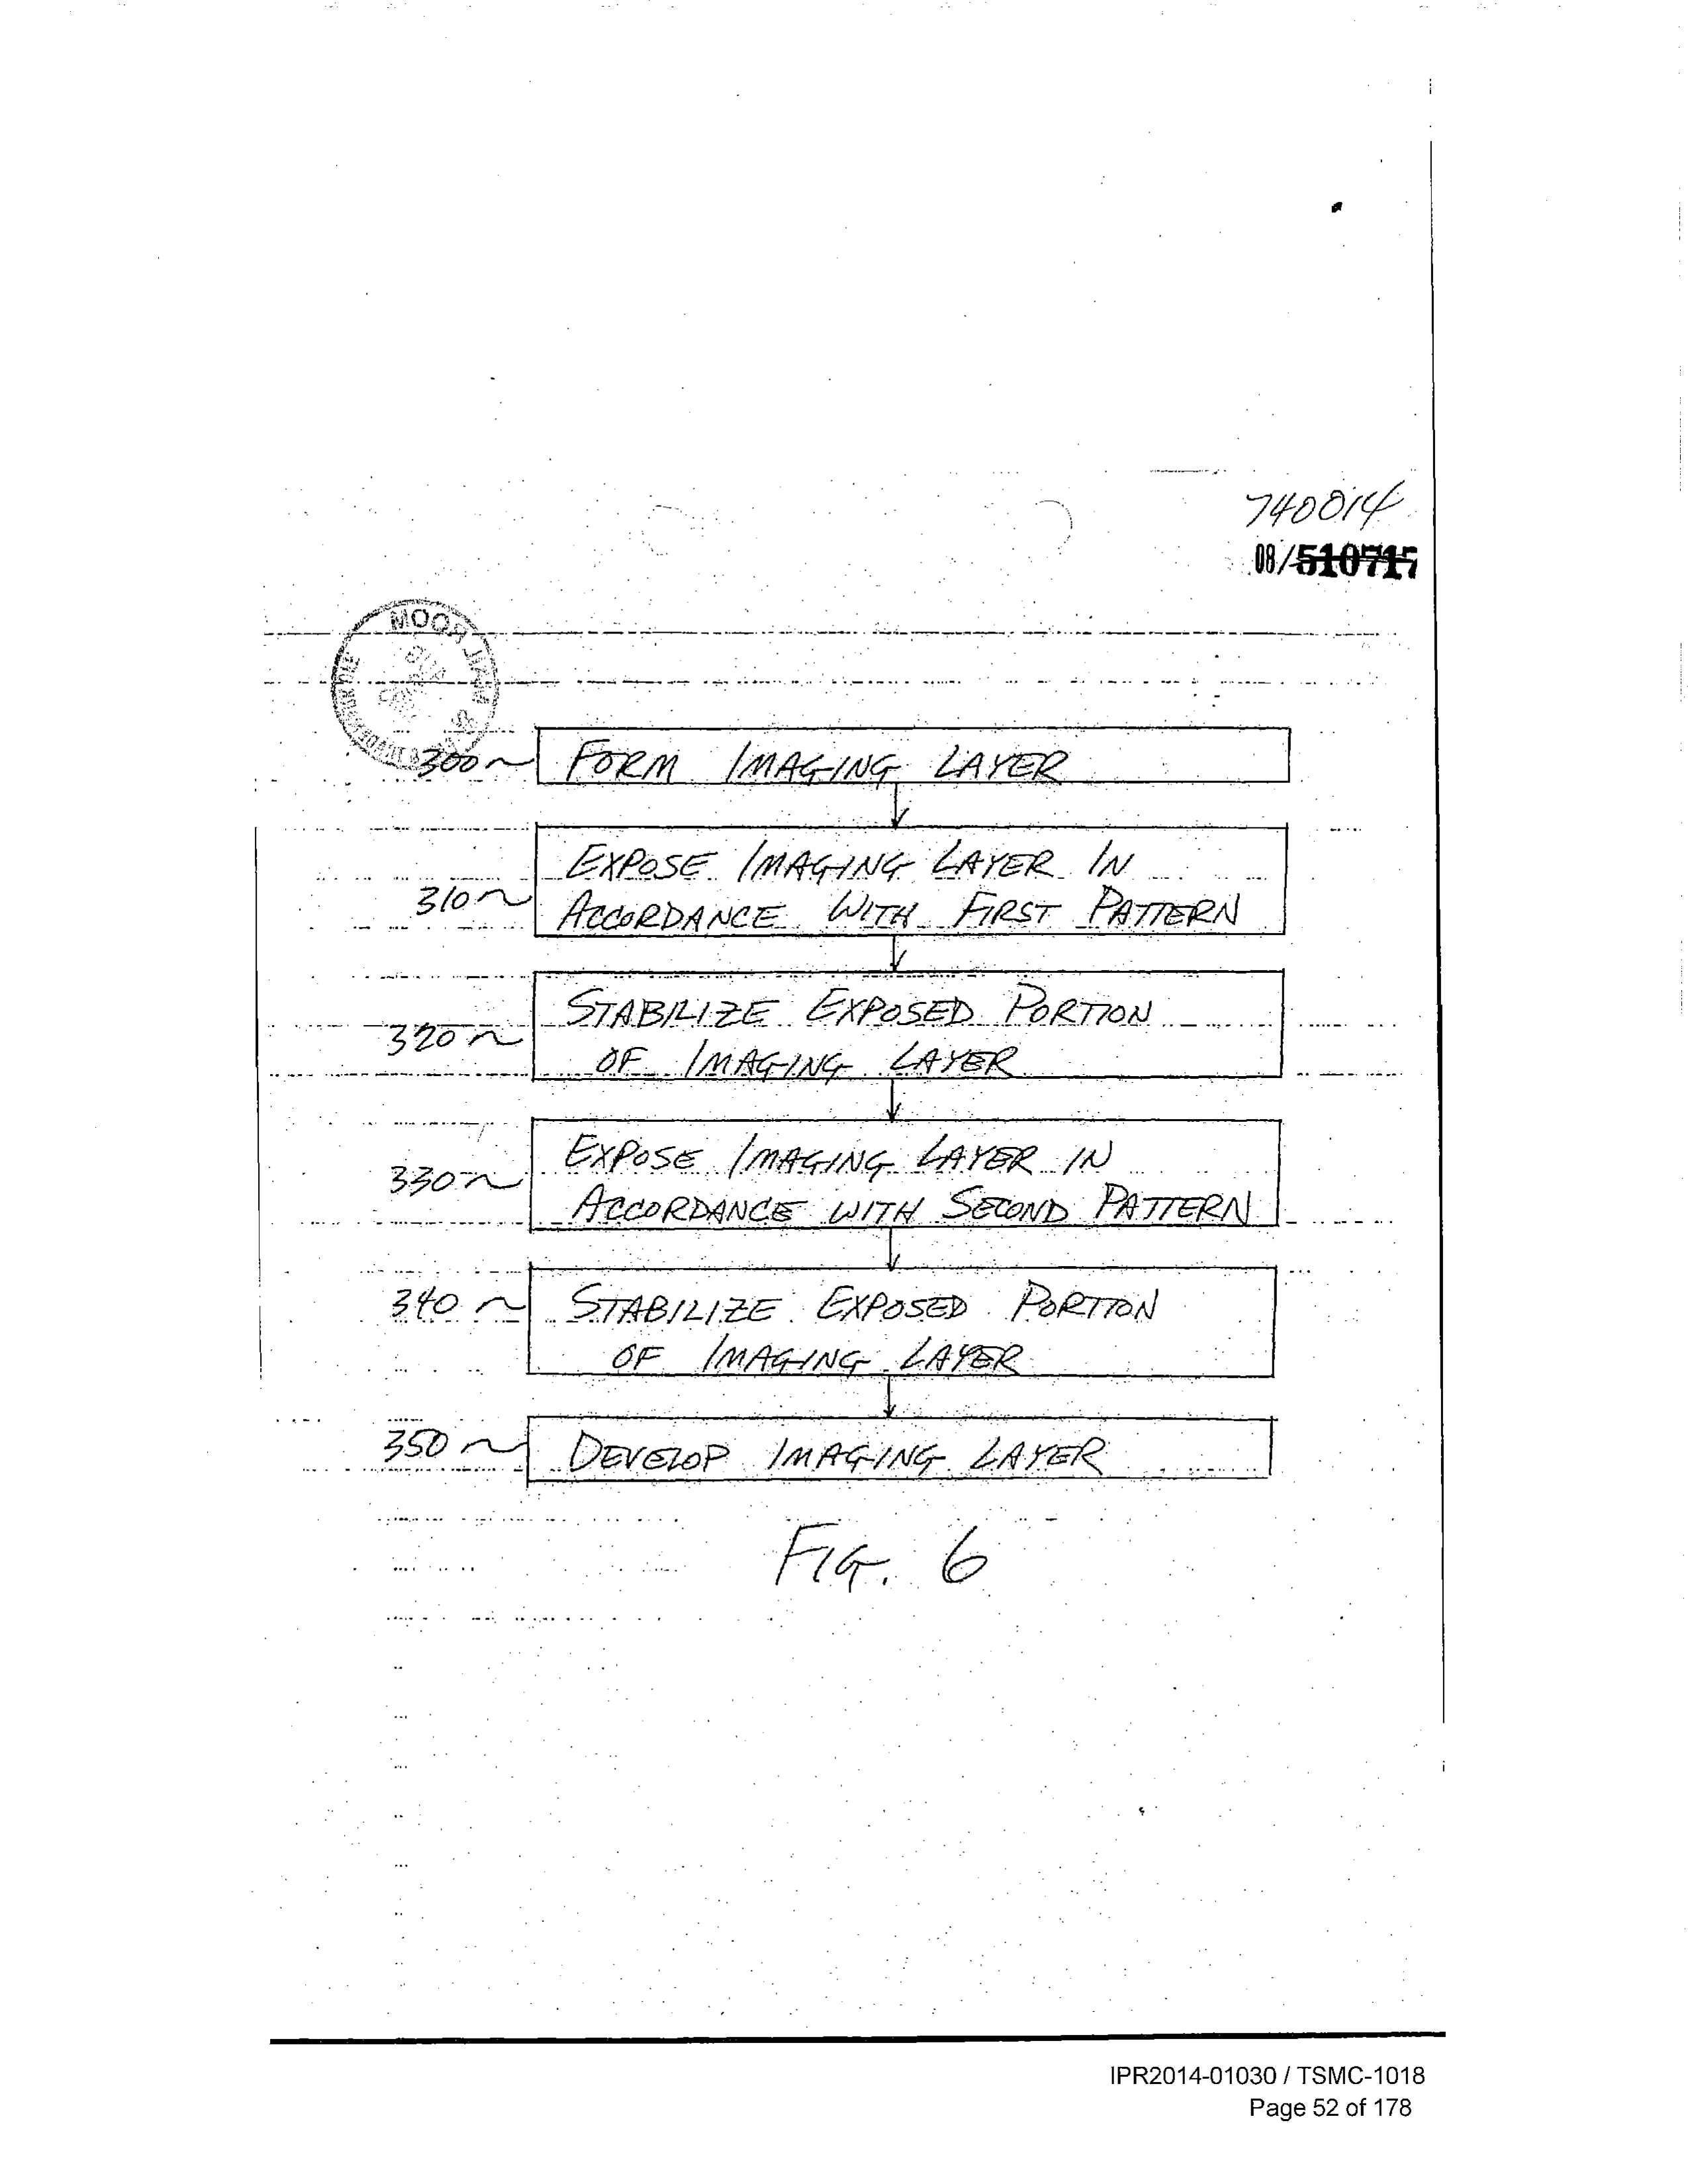 740014
08/510717
ROOM
300 FORM IMAGING LAYER
EXPOSE IMAGING LAYER IN
310 ACCORDANCE WITH FIRST PATTERN
STABILIZE EXPOSED PORTION
320 OF IMAGING LAYER
EXPOSE IMAGING LAYER IN
330 ACCORDANCE WITH SECOND PATTERN
340 STABILIZE EXPOSED PORTION
OF IMAGING LAYER
350 DEVELOP IMAGING LAYER
FIG. 6
IPR2014-01030 / TSMC-1018
Page 52 of 178